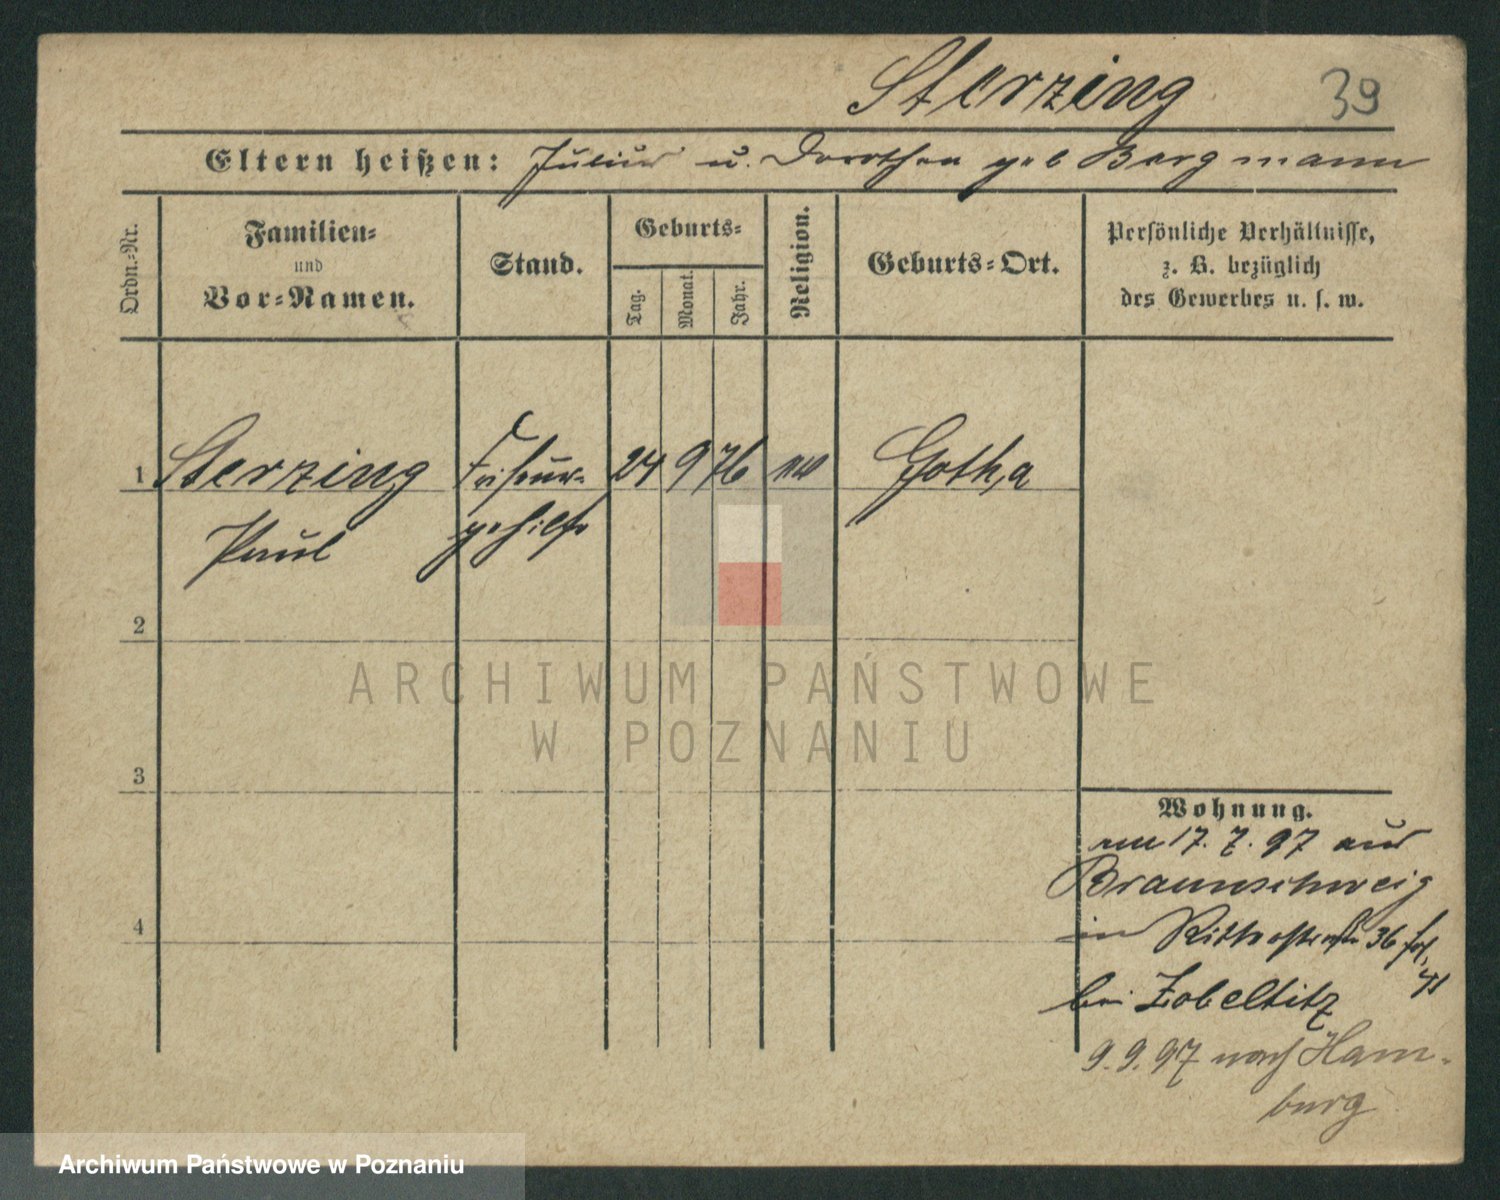 Sterzing 39
Eltern heißen: Julius u. Dorothea geb Bergmann
Ordn.-Nr.
Familien-
und
Vor-Namen.
Stand.
Geburts-
Tag.
Monat.
Jahr.
Religion.
Geburts-Ort.
Persönliche Verhältnisse,
z. B. bezüglich
des Gewerbes u. s. w.
1 Sterzing Friseur- 24 9 76 ev Gotha
Paul gehilfe
2
3
4
ARCHIWUM PAŃSTWOWE
W POZNANIU
Wohnung.
am 17. 7. 97 aus
Braunschweig
in Ritterstraße 36
bei Zobeltitz
9. 9. 97 nach Ham-
burg
Archiwum Państwowe w Poznaniu